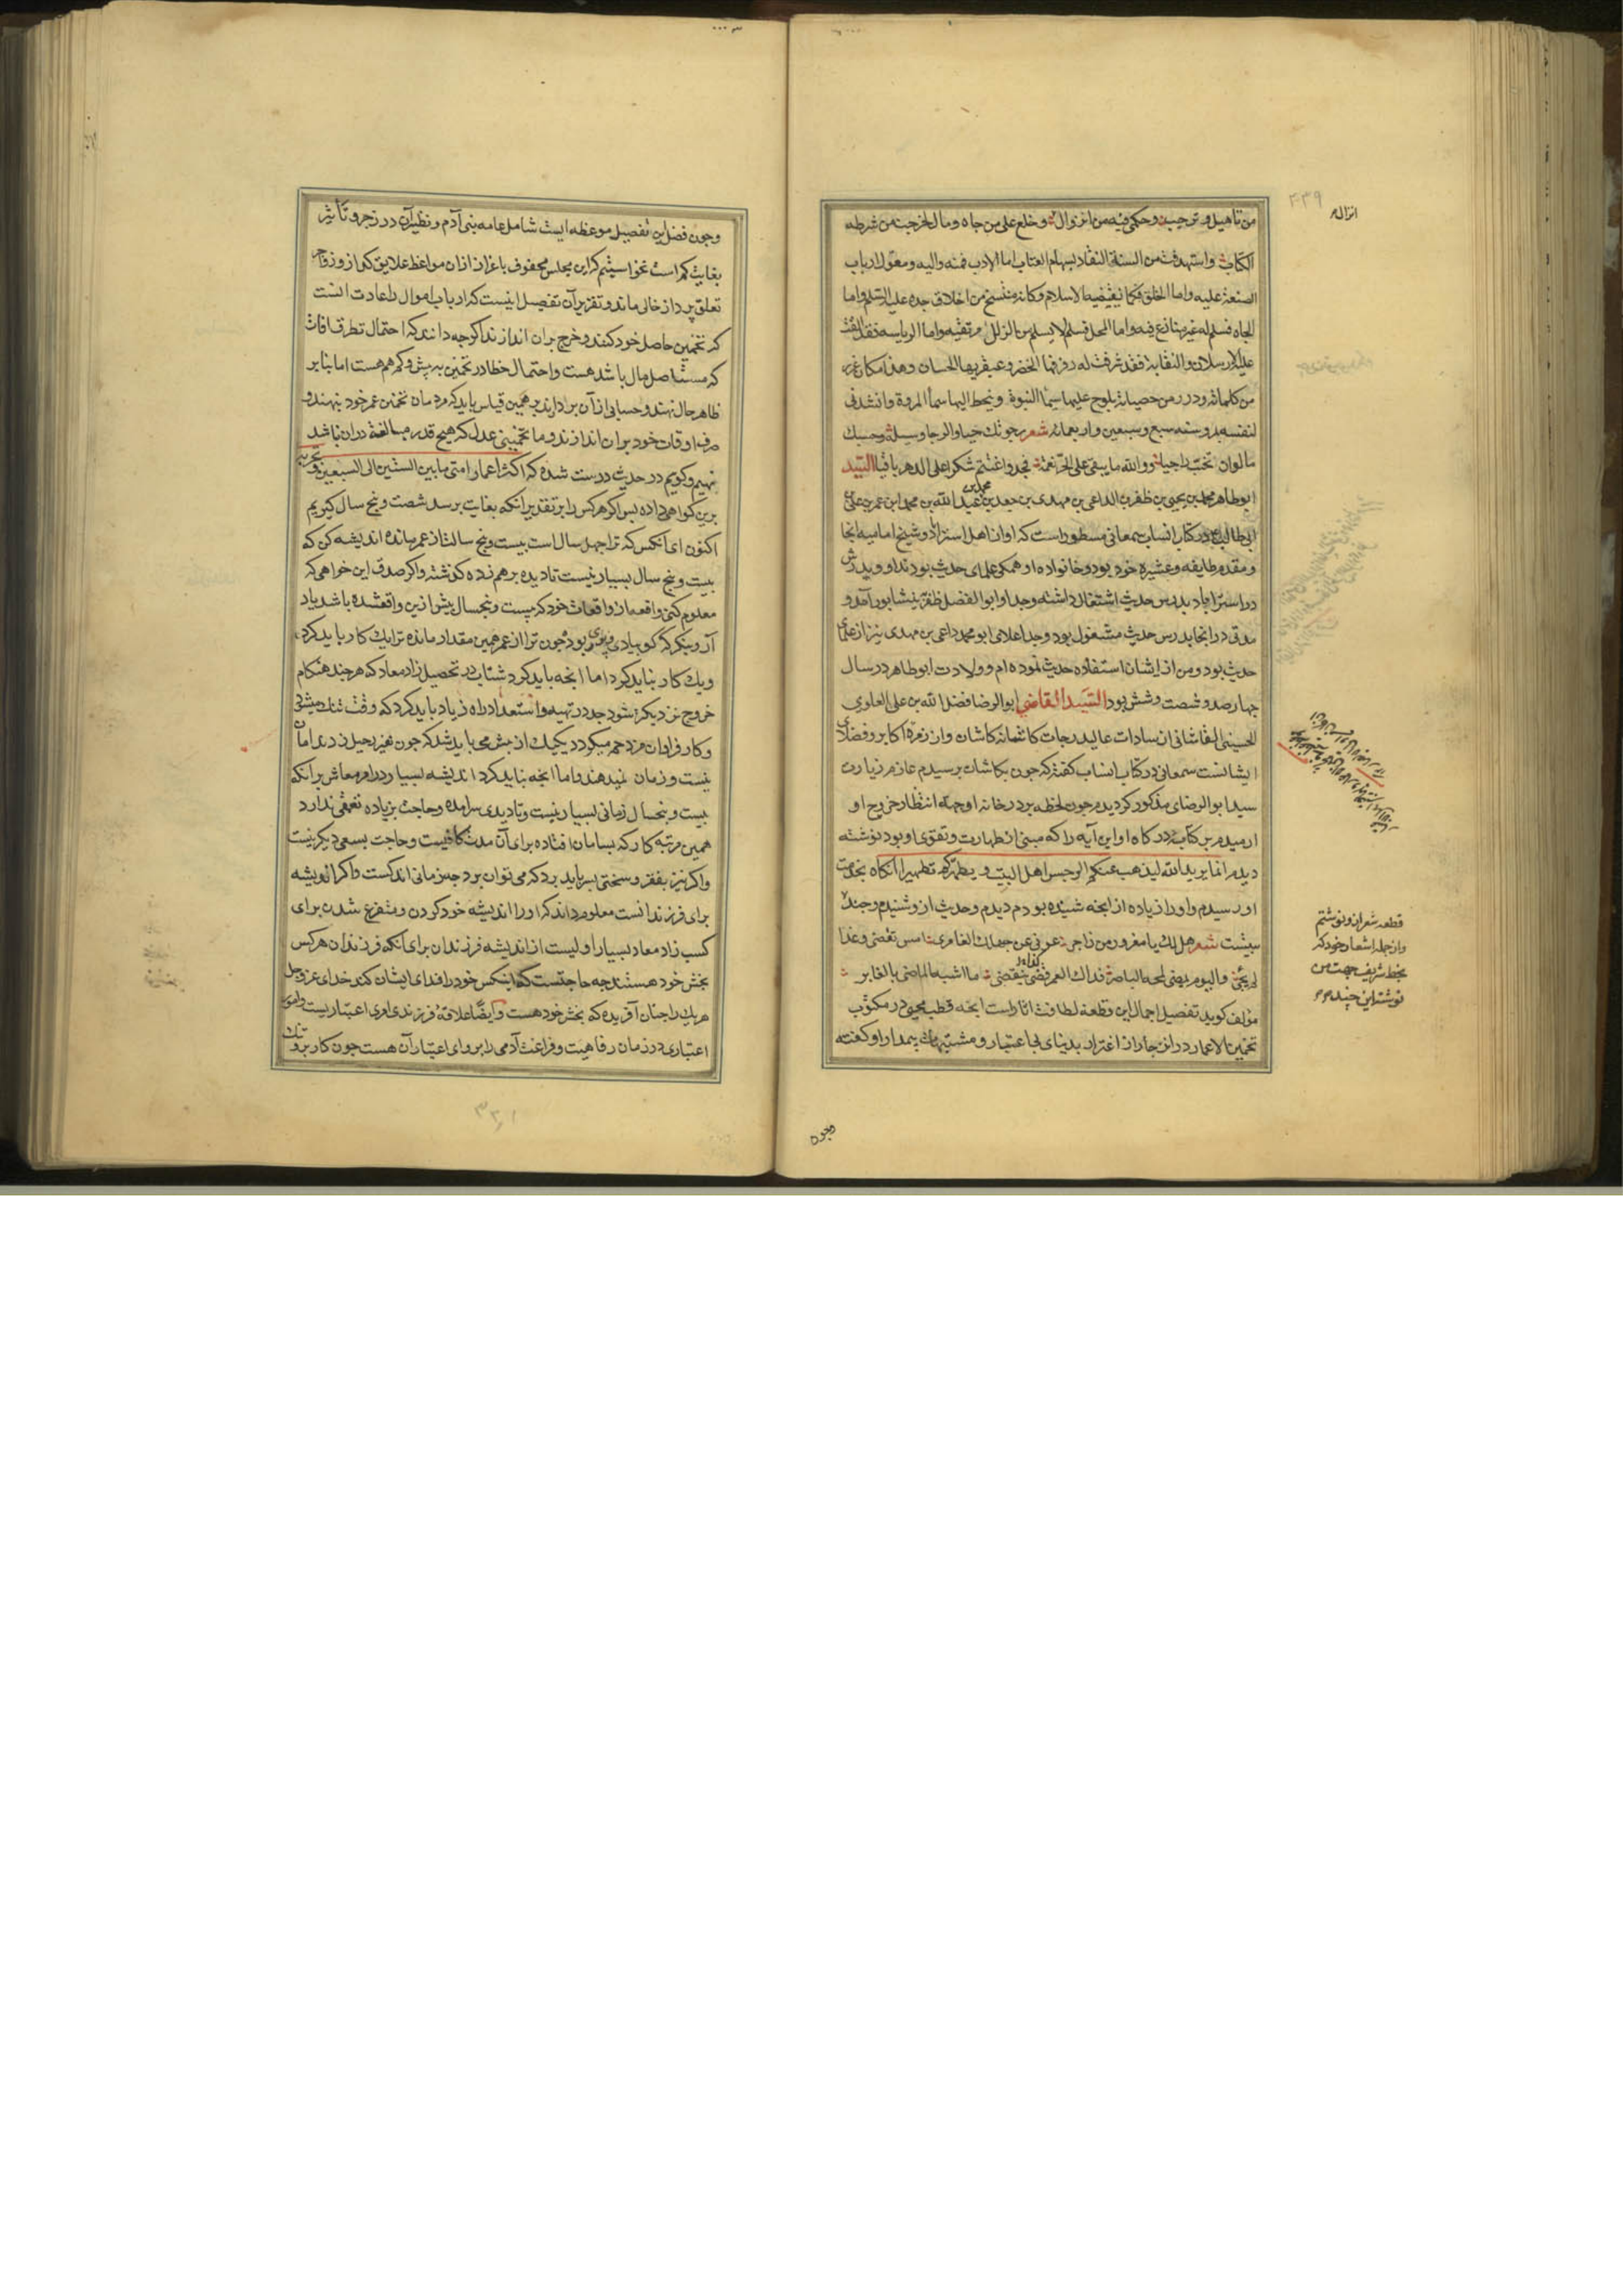 من تاهیل و ترحیب و حکمی فیه من انزوال و خلع علی من جاه و مال لخرجت من شرطه
الکتاب و استهدفت من السنة النقاد بسهام العتاب اما الادب فمنه والیه و معول ارباب
الصنعة علیه و اما الخلق فکما یقتضیه الاسلام و کانه منتسخ من اخلاق جده علیه السلم و اما
الجاه فسلم له غیر منازع فیه و اما المحل فسلم لا یسلم من الزلل مرتقیه و اما الریاسه فقد القت
علیه ارسلان و النقابة فقد شرفت له رفرفها الخضر و عبقریها الحسان و هذا مکان غرر
من کلماته و درر من حصیاته یلوح علیها سیما النبوة و ینحط الیها سما المروة و انشدنی
لنفسه بدو سنه سبع و سبعین و اربعمائه شعر رجوتک حیا و الرجا وسیلة و حسبک
السید
ابو طاهر محمد بن یحیی بن ظفر بن الداعی بن مهدی بن محمد بن جعفر بن عبد الله بن محمد ابن عمر بن علی
ابی طالب در کتاب انساب سمعانی مسطور است که او از اهل استراباد و شیخ امامیه انجا
و مقدم طایفه و عشیره خود بود و خانواده او همکی علمای حدیث بودند او و پدرش
در استراباد بدرس حدیث اشتغال داشته و جد او ابو الفضل ظفر بنیشابور آمد و
مدتی در انجا بدرس حدیث مشغول بود و جد اعلای ابو محمد داعی بن مهدی نیز از علمای
حدیث بود و من از ایشان استفاده حدیث نموده ام و ولادت ابو طاهر در سال
چهارصد و شصت و شش بود السید القاضی ابو الرضا فضل الله بن علی العلوی
الحسینی القاشانی از سادات عالیدرجات کاشانه کاشان و از زمره اکابر و فضلای
ایشانست سمعانی در کتاب انساب گفته که چون بکاشان رسیدم عازم زیارت
سید ابو الرضای مذکور کردیدم چون لحظه بر در خانه او جهة انتظار خروج او
ارمیدم بر کتابه درکاه او این آیه را که مبنی از طهارت و تقوی او بود نوشته
دیدم انما یرید الله لیذهب عنکم الرجس اهل البیت و یطهرکم تطهیرا انگاه بخدمت
او رسیدم و او را زیاده از انجه شنیده بودم دیدم و حدیث از و شنیدم و چند
بیشت شعر هل لک یا مغرور من زاجر فترعوی عن جهلک الغامر امس تقضی و غدا
لم یجئ و الیوم یمضی لمحه الباصر فذاک العمر کذا ینقضی ما اشبه الماضی بالغابر
مؤلف کوید تفصیل اجمال این قطعه لطافت اثار است انجه قطب محیی در مکتوب
تخمین الاعمار در انزجار از اغترار بدنیای بی اعتبار و مشتهیات بیمدار او کفته
انزال م
۴۳۹
قطعه شعر ازو نوشتم
و از جمله اشعار خود که
بخط شریف جهت من
نوشته این چند م م
و چون
و چون فضل این تفصیل موعظه ایست شامل عامه بنی آدم و نظیر آن در زجر و تأثیر
بغایت کم است نخواستیم که این مجلس محفوف باعزاز ازان مواعظ علایق کداز و زواجر
تعلق پرداز خالی ماند و تقریر آن تفصیل اینست که ارباب اموال را عادت انست
که تخمین حاصل خود کنند و خرج بران اندازند اکرچه دانند که احتمال تطرق افات
که مستاصل مال باشد هست و احتمال خطا در تخمین به بیش و کم هم هست اما بنا بر
ظاهر حال نهند و حسابی از آن بردارند بر همین قیاس باید که مردمان تخمین عمر خود بنهند و
صرف اوقات خود بران اندازند و ما تخمینی عدل که هیچ قدر مبالغه دران نباشد
نهیم و کویم در حدیث درست شده که اکثر اعمار امتی ما بین الستین الی السبعین و تجربه
برین کواهی داده پس اکر هر کس را بر تقدیر انکه بغایت برسد شصت و پنج سال کیریم
اکنون ای انکس که ترا چهل سال است بیست و پنج سالت از عمر مانده اندیشه کن که
بیست و پنج سال بسیار نیست تا دیده بر هم زده کذشته و اکر صدق این خواهی که
معلوم کنی واقعه از واقعات خود که بیست و پنجسال پیش ازین واقعشده باشد یاد
آر و بنکر که کوییا دی و پری بود و چون ترا از عمر همین مقدار مانده ترا یک کار باید کرد
و یک کار نباید کرد اما انجه باید کرد شتاب در تحصیل زاد معاد که هر چند هنکام
خروج نزدیکتر شود جد در تهیه و استعداد راه زیاد باید کرد که وقت تنک میشود
و کار فراوان مزدحم میکردد یکیک از پیش می باید شد که چون نفیر رحیل زدند امان
نیست و زمان نمیدهند و اما انجه نباید کرد اندیشه بسیار در امر معاش بر انکه
بیست و پنجسال زمانی بسیار نیست و تا دیدی سرامده و حاجت بزیاده تعمقی ندارد
همین مرتبه کار که بسامان افتاده برای آن مدت کافیست و حاجت بسعی دیکر نیست
و اکر نیز بفقر و سختی بسر باید برد که می توان برد چه زمانی اندکست و اکر اندیشه
برای فرزندانست معلوم داند که او را اندیشه خود کردن و متفرغ شدن برای
کسب زاد معاد بسیار اولیست از اندیشه فرزندان برای انکه فرزندان هر کس
بخش خود هستند چه حاجتست که اینکس خود را فدای ایشان کند خدای عز و جل
هر یک را چنان آفریده که بخش خود هست و ایضا علاقه فرزندی امری اعتباریست و امور
اعتباری در زمان رفاهیت و فراغت آدمی را پروای اعتبار آن هست چون کار برو تنک
۳۲۱